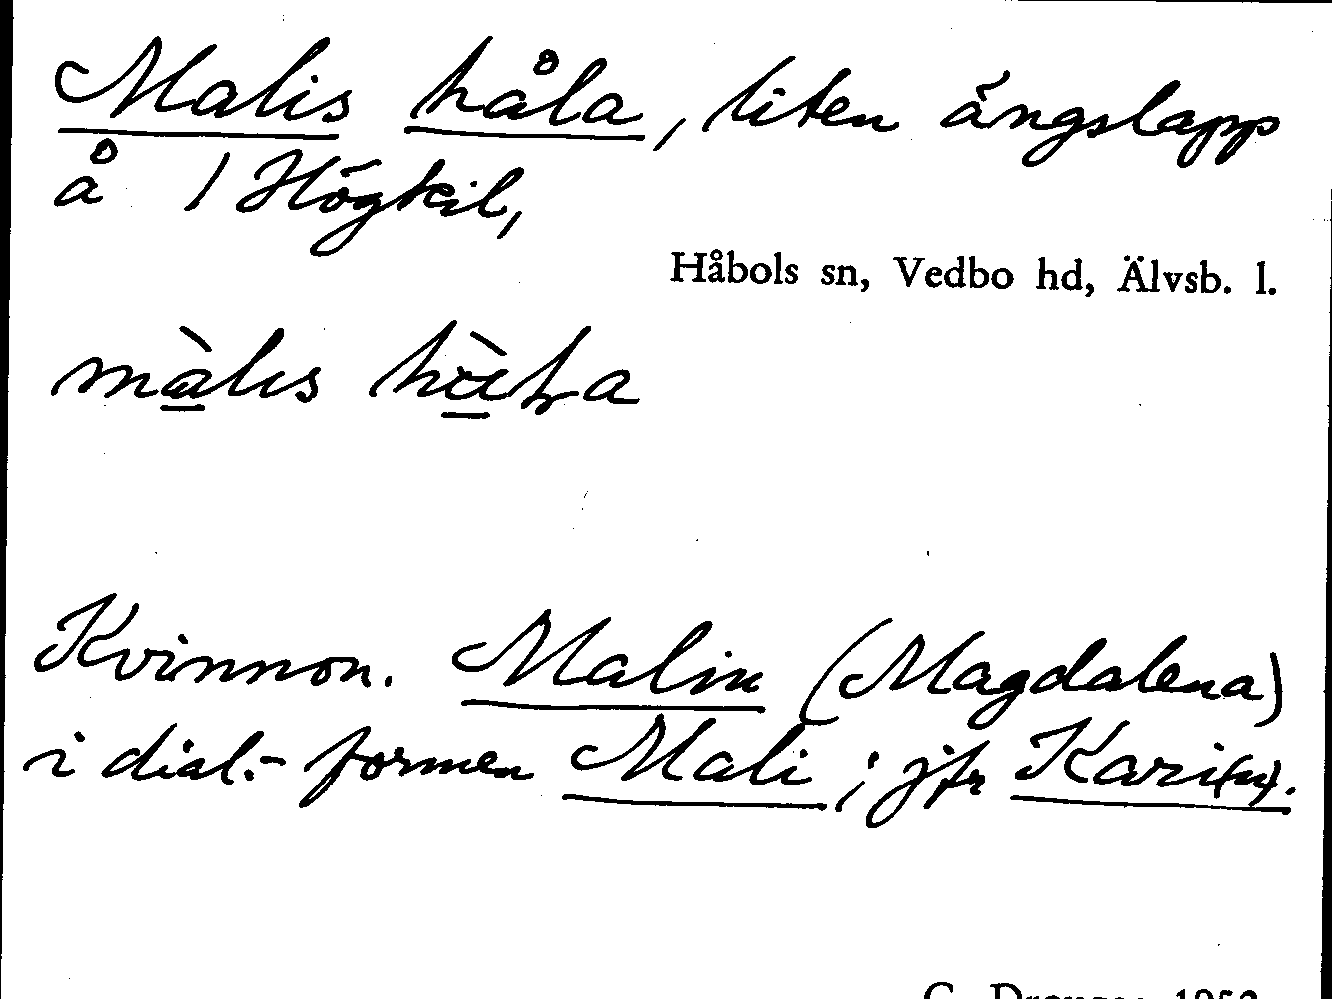 Malis håla, liten ängslapp
å 1 Högkil,
Håbols sn, Vedbo hd, Älvsb. l.
Kvinnon. Malin (Magdalena)
i dial.- formen Mali; jfr Kari(n).